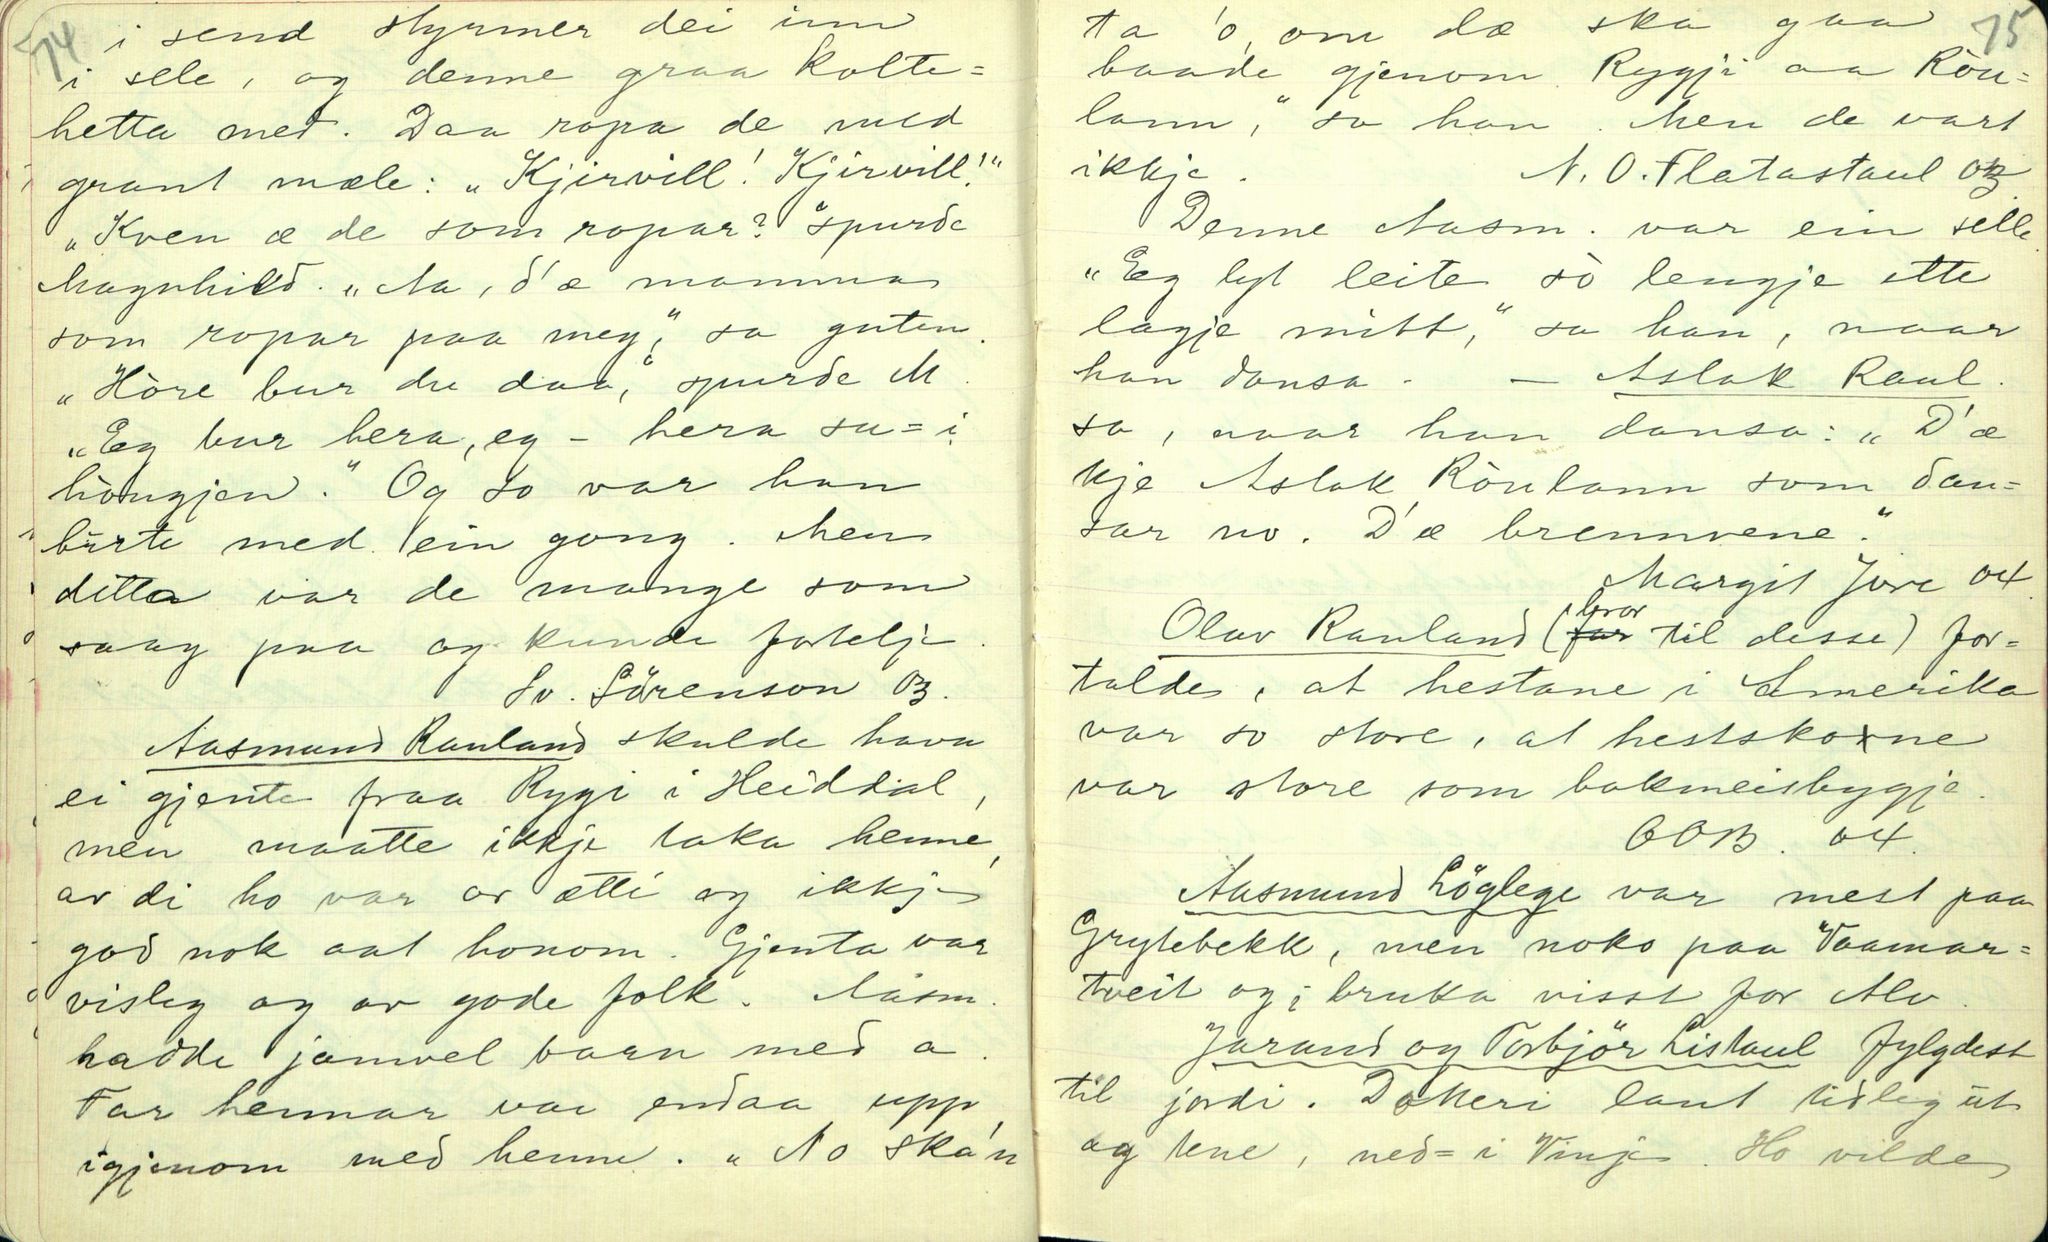 74
i send styrmer dei inn
i sele, og denne graa kolte=
hetta med. Daa ropa de med
grant mæle: „Kjirvill! Kjirvill!“
„Kven æ de som ropar?“ spurde
Magnhild. „Aa, d'æ mamma
som ropar paa meg,“ sa guten.
„Hòre bur du daa,“ spurde M.
„Eg bur hera, eg – hera su=i
hòugjen.“ Og so var han
burte med ein gong. Men
ditta var de mange som
saag paa og kunde fortelje.
Sv. Sörenson 03.
Aasmund Rauland skulde hava
ei gjente fraa Rygi i Heiddal,
men maatte ikkje taka henne,
av di ho var av ætti og ikkje
god nok aat honom. Gjenta var
visleg og av gode folk. Aasm.
hadde jamvel barn med a.
Far hennar var endaa upp
igjenom med henne. „No ska'n
75
ta 'o, om dæ ska gaa
baade gjenom Rygji aa Ròu=
lann,“ sa han. Men de vart
ikkje. N. O. Flatastaul 03
Denne Aasm. var ein selle.
„Eg lyt leite sò lengje ette
lagje mitt,“ sa han, naar
han dansa. – Aslak Raul.
sa, naar han dansa: „D'æ
kje Aslak Ròulann som dan=
sar no. D'æ brennvene.“
Margit Jore 04
Olav Rauland (far bror til desse) for=
talde, at hestane i Amerika
var so store, at hestskorne
var store som bakmeisbygje.
OOB. 04.
Aasmund Löglege var mest paa
Grytebekk, men noko paa Vaamar=
tveit og; bruka visst for Alv.
Jarand og Torbjör Listaul fylgdest
til jordi. Dokkeri laut tidleg ut
og tene, ned=i Vinje. Ho vilde